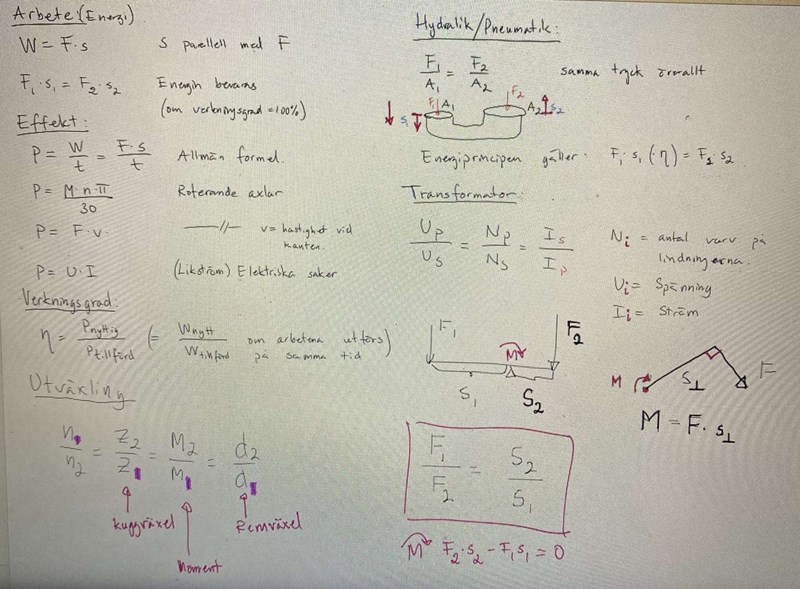 Arbete: (Energi)
W = F·s    S paellell med F
F₁·s₁ = F₂·s₂    Energin bevaras
(om verkningsgrad = 100%)
Effekt:
P = W/t = F·s/t    Allmän formel.
P = M·n·π/30    Roterande axlar
P = F·v.    —//—    v = hastighet vid kanten.
P = U·I    (Likström) Elektriska saker
Verkningsgrad:
η = Pnyttig/Ptillförd (= Wnytt/Wtillförd om arbetena utförs på samma tid)
Utväxling
n₁/n₂ = Z₂/Z₁ = M₂/M₁ = d₂/d₁
Kuggväxel
Moment
Remväxel
Hydralik/Pneumatik:
F₁/A₁ = F₂/A₂    samma tryck överallt
s₁ F₁ A₁ F₂ A₂ s₂
Energiprincipen gäller: F₁·s₁ (·η) = F₂·s₂
Transformator:
Up/Us = Np/Ns = Is/Ip
Ni = antal varv på lindningarna.
Ui = Spänning
Ii = Ström
F₁ M F₂
S₁ S₂
M S⊥ F
M = F·s⊥
F₁/F₂ = S₂/S₁
M F₂·s₂ - F₁s₁ = 0